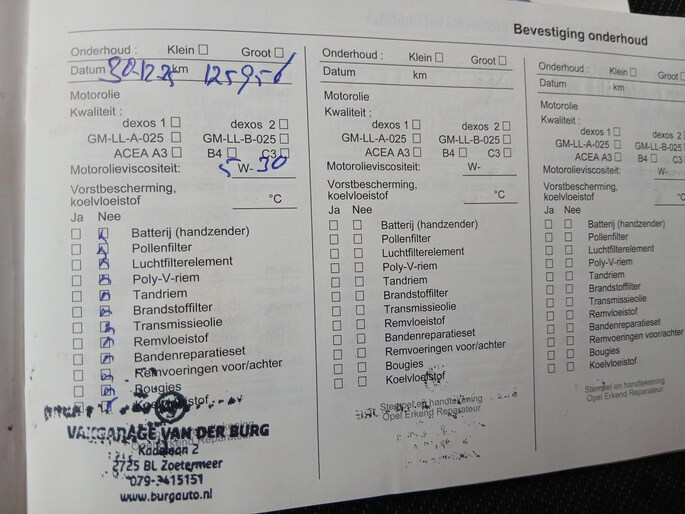 Bevestiging onderhoud
Onderhoud : Klein Groot
Datum 30-12-25 km 125956
Motorolie
Kwaliteit :
dexos 1 dexos 2
GM-LL-A-025 GM-LL-B-025
ACEA A3 B4 C3
Motorolieviscositeit: 5 W- 30
Vorstbescherming,
koelvloeistof °C
Ja Nee
Batterij (handzender)
Pollenfilter
Luchtfilterelement
Poly-V-riem
Tandriem
Brandstoffilter
Transmissieolie
Remvloeistof
Bandenreparatieset
Remvoeringen voor/achter
Bougies
Koelvloeistof
VAKGARAGE VAN DER BURG
Opel Erkend Reparateur
2725 BL Zoetermeer
079-3415151
www.burgauto.nl
Onderhoud : Klein Groot
Datum km
Motorolie
Kwaliteit :
dexos 1 dexos 2
GM-LL-A-025 GM-LL-B-025
ACEA A3 B4 C3
Motorolieviscositeit: W-
Vorstbescherming,
koelvloeistof °C
Ja Nee
Batterij (handzender)
Pollenfilter
Luchtfilterelement
Poly-V-riem
Tandriem
Brandstoffilter
Transmissieolie
Remvloeistof
Bandenreparatieset
Remvoeringen voor/achter
Bougies
Koelvloeistof
Stempel en handtekening
Opel Erkend Reparateur
Onderhoud : Klein Groot
Datum km
Motorolie
Kwaliteit :
dexos 1 dexos 2
GM-LL-A-025 GM-LL-B-025
ACEA A3 B4 C3
Motorolieviscositeit: W-
Vorstbescherming,
koelvloeistof °C
Ja Nee
Batterij (handzender)
Pollenfilter
Luchtfilterelement
Poly-V-riem
Tandriem
Brandstoffilter
Transmissieolie
Remvloeistof
Bandenreparatieset
Remvoeringen voor/achter
Bougies
Koelvloeistof
Stempel en handtekening
Opel Erkend Reparateur